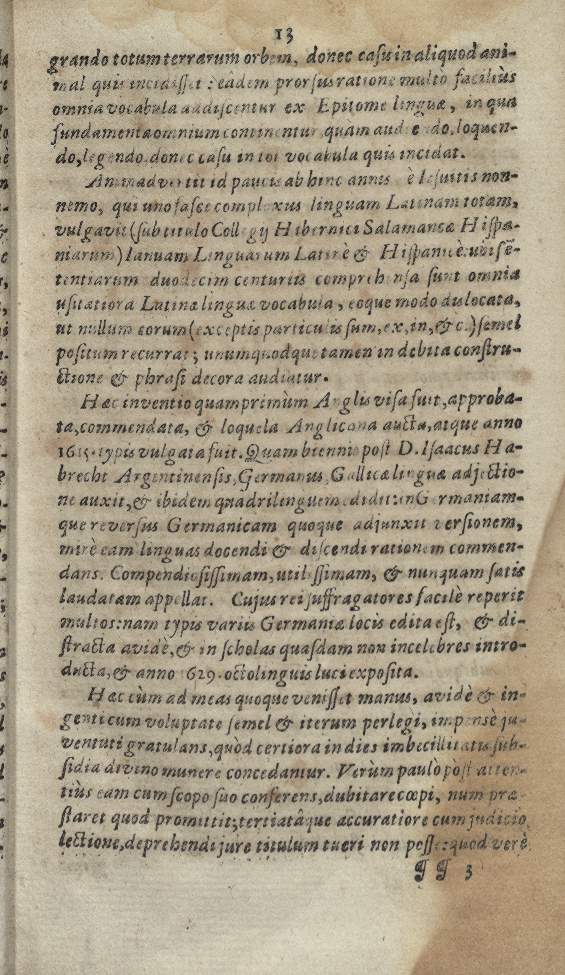 13
grando totum terrarum orbem, donec casu in aliquod ani-
mal quis incidisset: eâdem prorsus ratione multò faciliùs
omnia vocabula addiscentur ex Epitome linguæ, in qua
fundamenta omnium continentur, quam audiendo, loquen-
do, legendo. donec casu in tot vocabula quis incidat.
Animadvertit id paucis ab hinc annis è Iesuitis non-
nemo, qui uno fasce complexus linguam Latinam totam,
vulgavit (sub titulo Collegij Hibernici Salamancæ Hispa-
niarum) Ianuam Linguarum Latinè & Hispanicè: ubi sẽ-
tentiarum duodecim centuriis comprehensa sunt omnia
usitatiora Latinæ linguæ vocabula, eoque modo dislocata,
ut nullum eorum (exceptis particulis sum, ex, in, &c.) semel
positum recurrat; unumquodque tamen in debita constru-
ctione & phrasi decora audiatur.
Hæc inventio quamprimùm Anglis visa fuit, approba-
ta, commendata, & loquela Anglicana aucta, atque anno
1615. typis vulgata fuit. Quam biennio post D. Isaacus Ha-
brecht Argentinensis, Germanus, Gallicæ linguæ adjectio-
ne auxit, & ibidem quadrilinguem edidit: in Germaniam-
que reversus Germanicam quoque adjunxit versionem,
mirè eam linguas docendi & discendi rationem commen-
dans. Compendiosissimam, utilissimam, & nunquam satis
laudatam appellat. Cujus rei suffragatores facilè reperit
multos: nam typis variis Germaniæ locis edita est, & di-
stracta avidè, & in scholas quasdam non incelebres intro-
ducta, & anno 1629. octolinguis luci exposita.
Hæc cùm ad meas quoque venisset manus, avidè & in-
genti cum voluptate semel & iterum perlegi, impensè ju-
ventuti gratulans, quòd certiora in dies imbecillitatis sub-
sidia divino munere concedantur. Verùm paulò pòst atten-
tiùs eam cum scopo suo conferens, dubitare cœpi, num præ-
staret quod promittit; tertiatâque accuratiore cum judicio
lectione, deprehendi jure titulum tueri non posse: quod verè
¶ ¶ 3